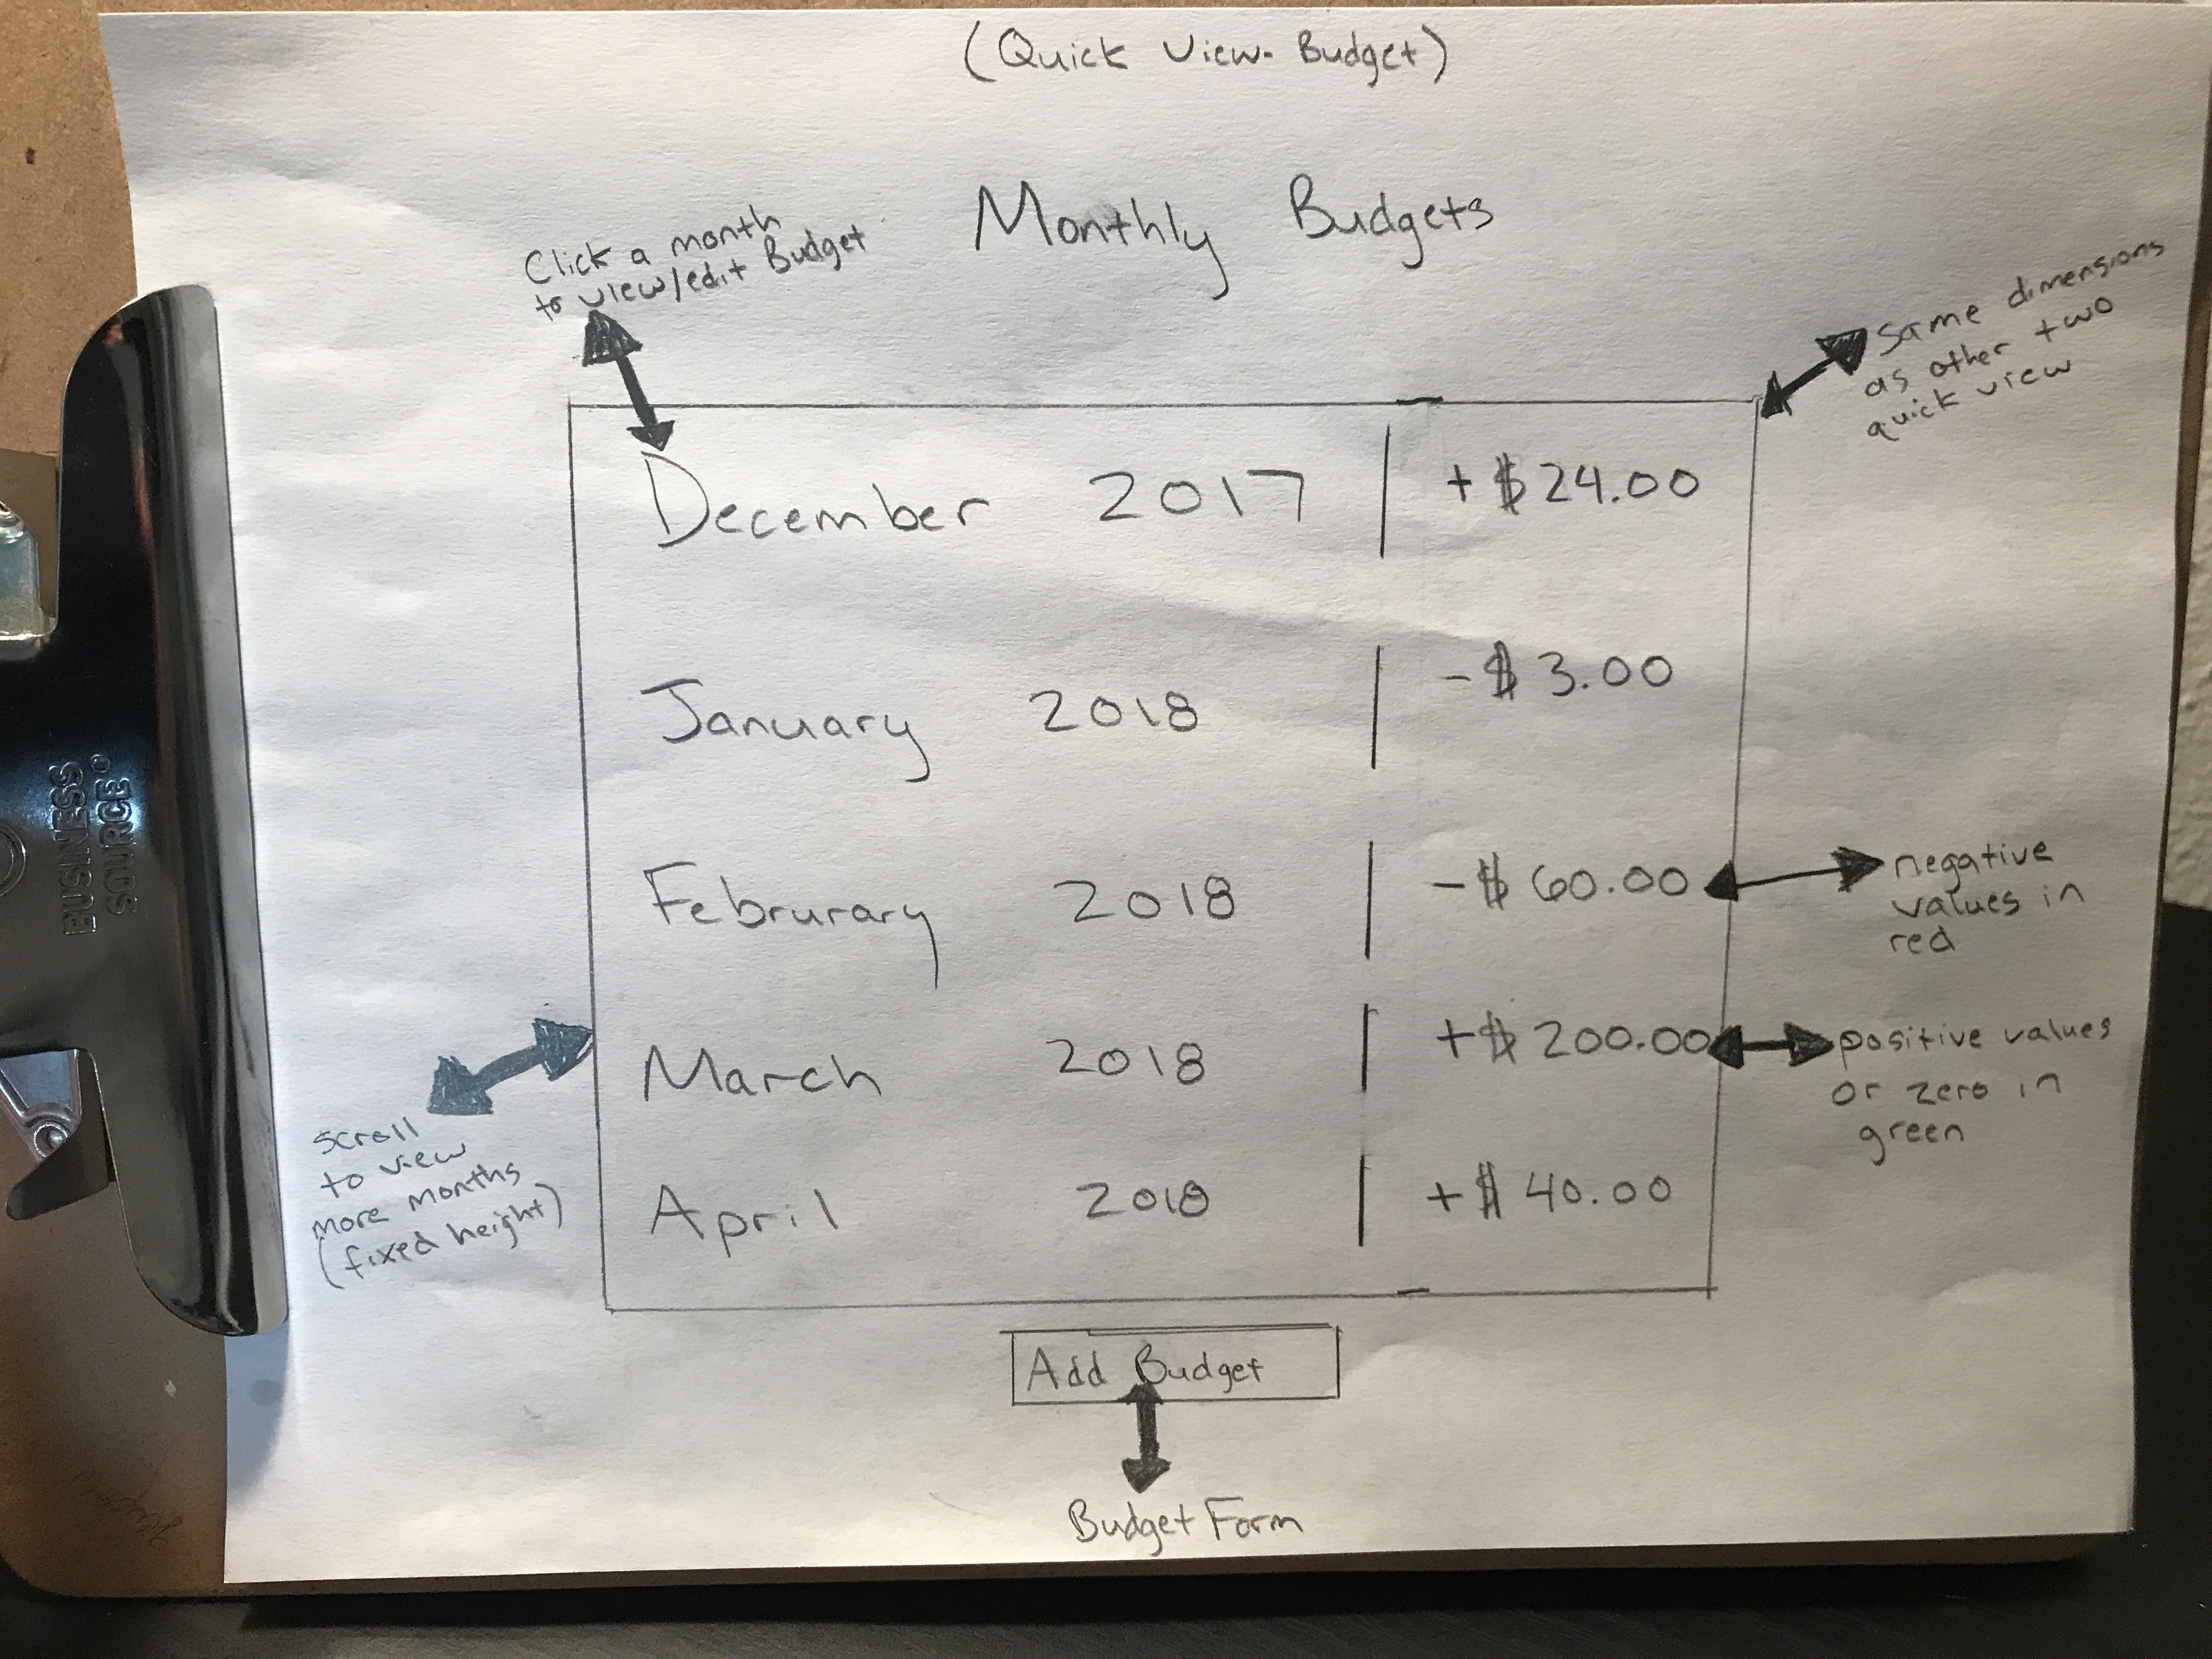 (Quick View- Budget)
Monthly Budgets
Click a month
to view/edit Budget
Same dimensions
as other two
quick view
December 2017 | +$24.00
January 2018 | -$3.00
Februrary 2018 | -$60.00
negative
values in
red
March 2018 | +$200.00
positive values
or zero in
green
April 2018 | +$40.00
scroll
to view
more months
(fixed height)
Add Budget
Budget Form
BUSINESS
SOURCE